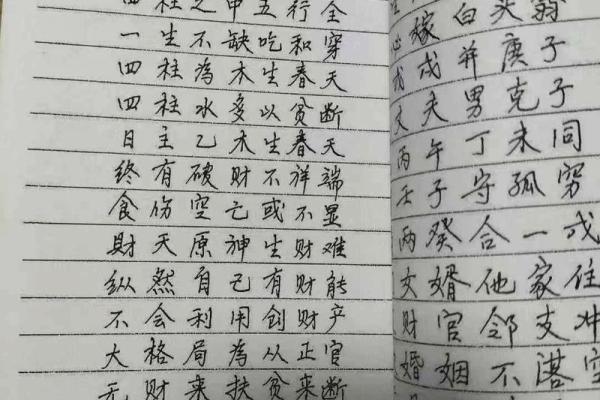 四柱之中五行全
一生不缺吃和穿
四柱為木生春天
四柱水多以贫断
日主乙木生春天
终有破财不祥端
食伤空亡或不显
財天原神生财难
纵然自己有财能
不会利用创财产
大格局為从正官
无财来扶贫来断
嫁白头翁
戊戌并庚子
丈夫男克子
丙午丁未同
壬子守孤穷
两癸合一戊
女婿他家住
财官邻支冲
婚姻不湛空